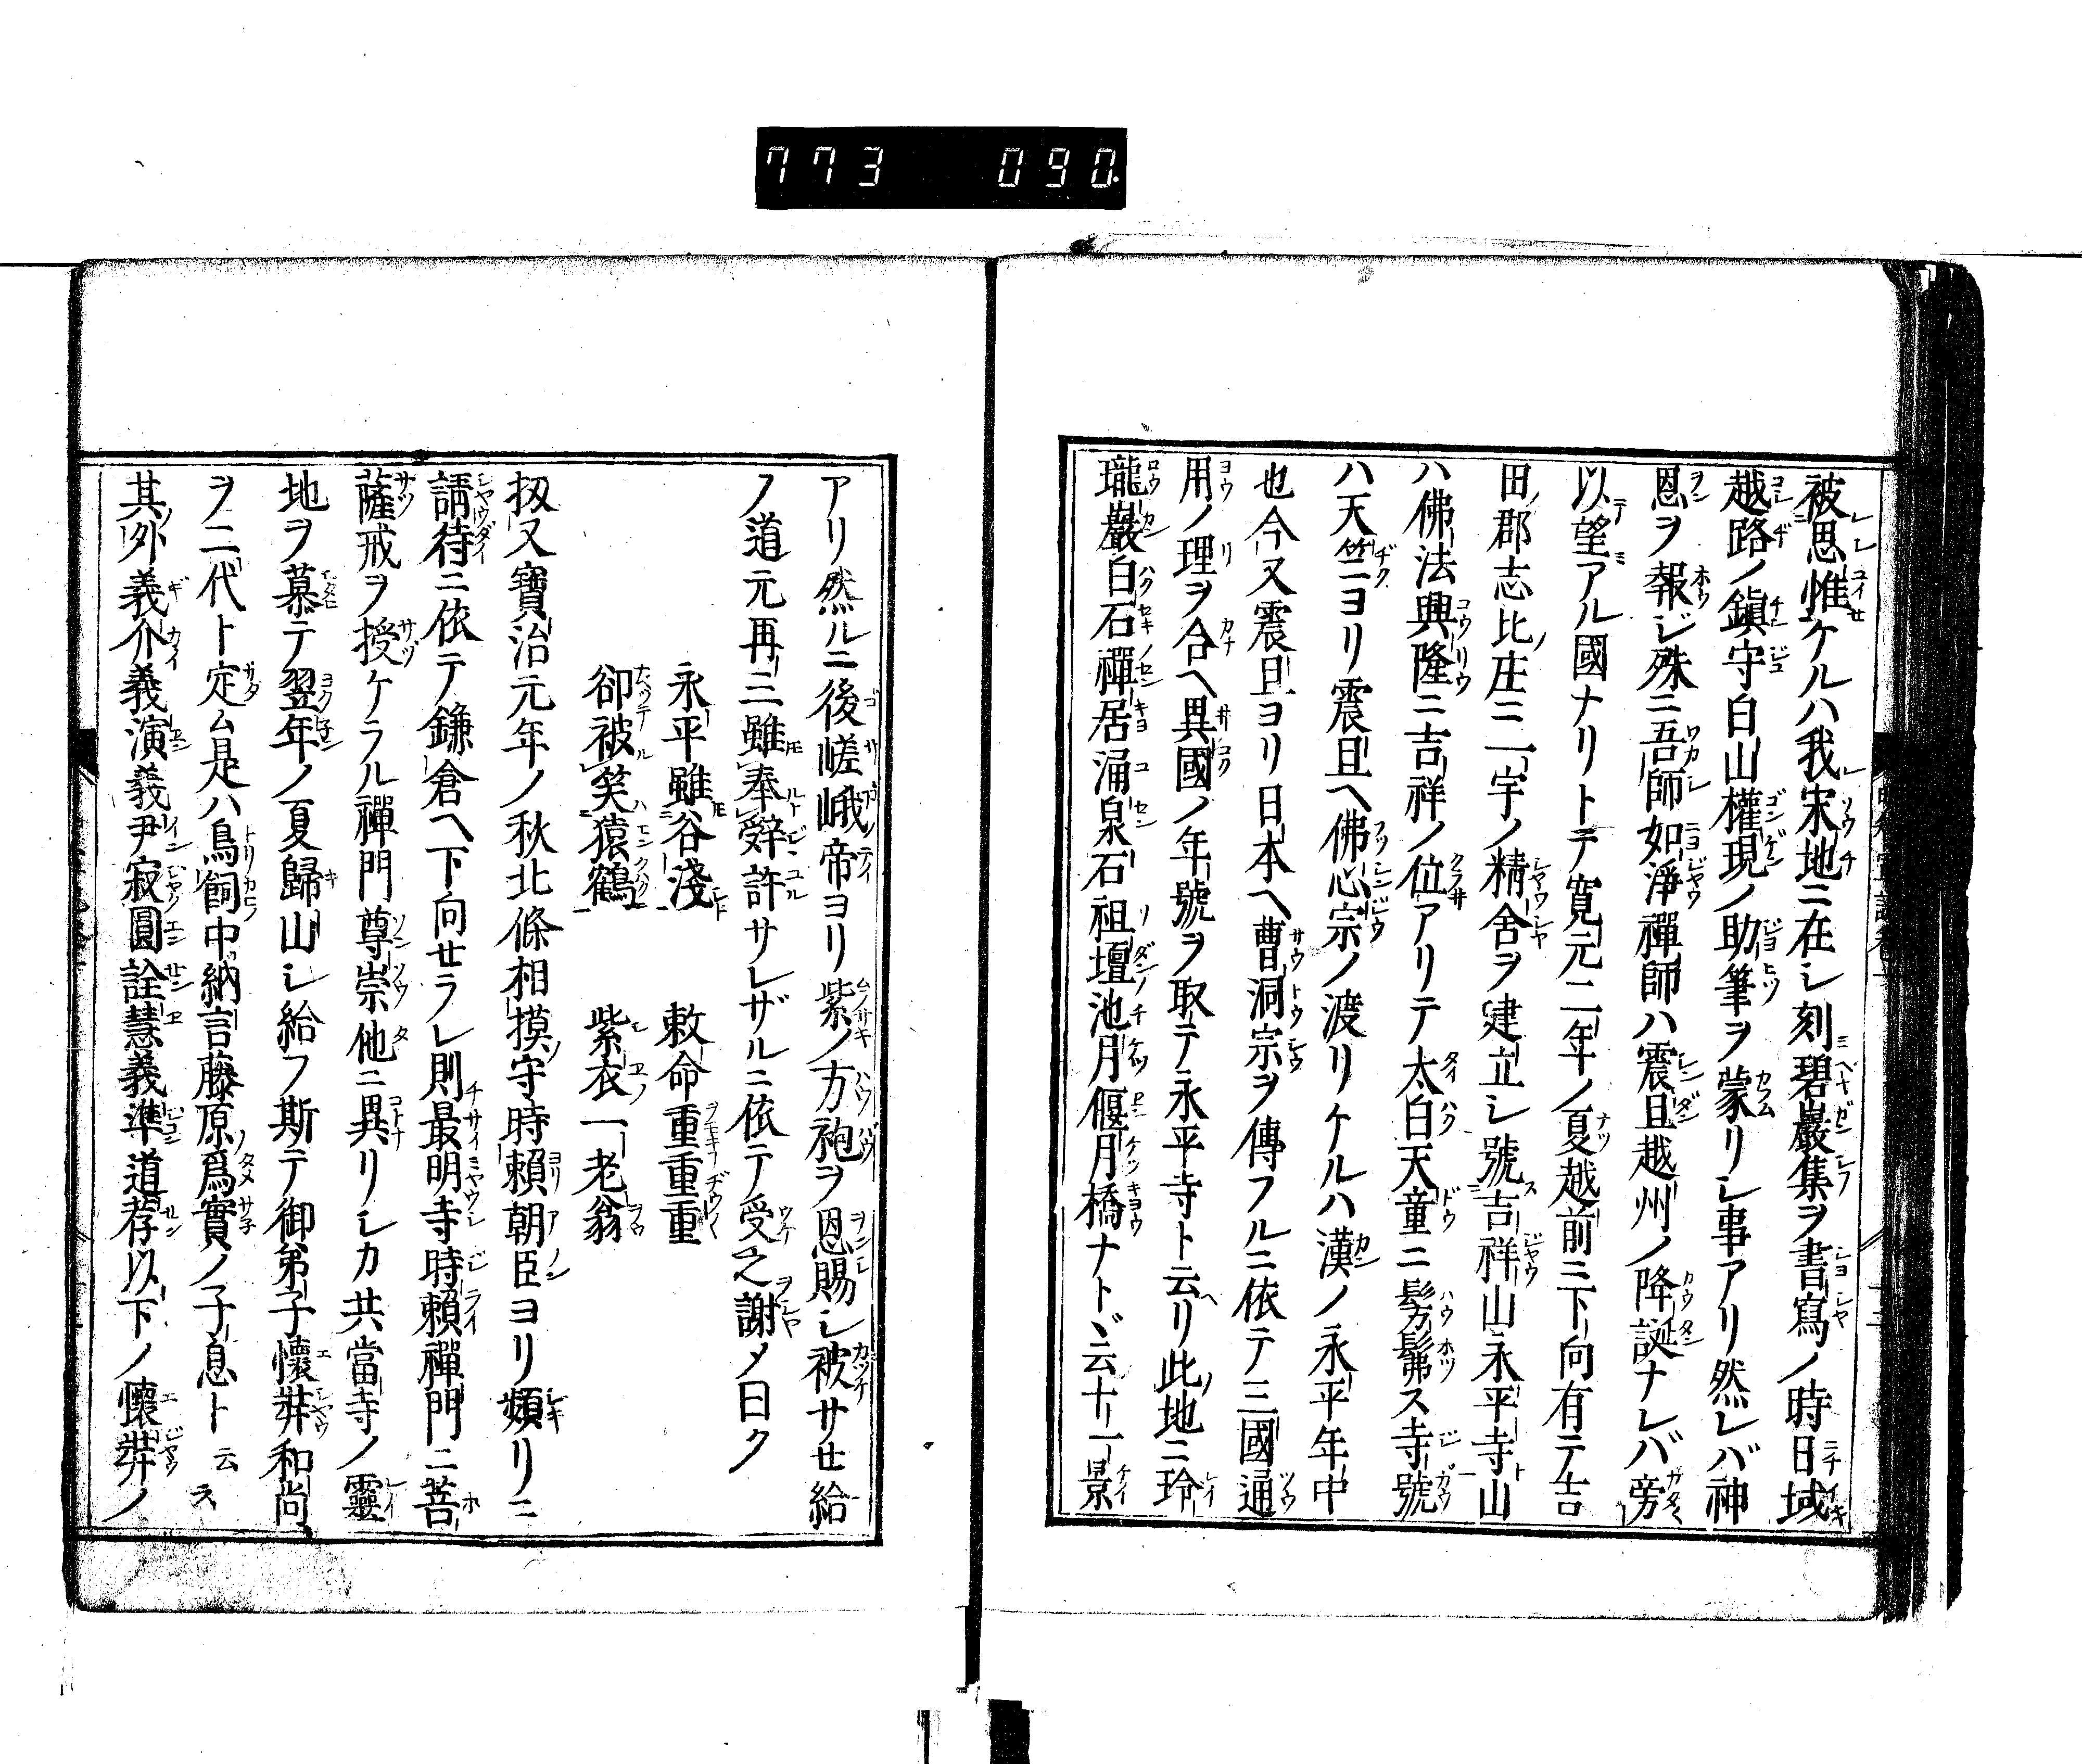 773 090
被思惟ケルハ我宋地ニ在シ刻碧巖集ヲ書寫ノ時日域
越路ノ鎭守白山權現ノ助筆ヲ蒙リシ事アリ然レバ神
恩ヲ報ジ殊ニ吾師如淨禪師ハ震旦越州ノ降誕ナレバ旁
以望アル國ナリトテ寛元二年ノ夏越前ニ下向有テ吉
田郡志比庄ニ一宇ノ精舍ヲ建立シ號吉祥山永平寺山
ハ佛法興隆ニ吉祥ノ位アリテ太白天童ニ髣髴ス寺號
ハ天竺ヨリ震旦ヘ佛心宗ノ渡リケルハ漢ノ永平年中
也今又震旦ヨリ日本ヘ曹洞宗ヲ傳フルニ依テ三國通
用ノ理ヲ合ヘ異國ノ年號ヲ取テ永平寺ト云リ此地ニ玲
瓏巖白石禪居涌泉石祖壇池月偃月橋ナトヾ云十一景
アリ然ルニ後嵯峨帝ヨリ紫ノ方袍ヲ恩賜シ被サセ給
フ道元再三雖奉辭許サレザルニ依テ受之謝メ曰ク
永平雖谷淺 敕命重重重
卻被笑猿鶴 紫衣一老翁
扨又寶治元年ノ秋北條相摸守時賴朝臣ヨリ頻リニ
請待ニ依テ鎌倉ヘ下向セラレ則最明寺時賴禪門ニ菩
薩戒ヲ授ケラル禪門尊崇他ニ異リシカ共當寺ノ靈
地ヲ慕テ翌年ノ夏歸山シ給フ斯テ御弟子懷弉和尚
ヲ二代ト定ム是ハ鳥飼中納言藤原爲實ノ子息ト云
其外義介義演義尹寂圓詮慧義準道荐以下ノ懷弉ノ